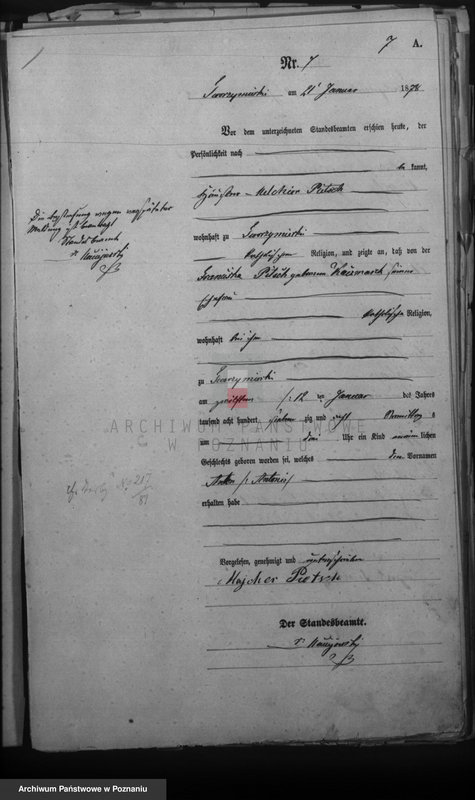 7 A.
Nr. 7
am 21 Januar 1878
Vor dem unterzeichneten Standesbeamten erschien heute, der
Persönlichkeit nach
kannt,
Melchior Pietsch
wohnhaft zu
katholischer Religion, und zeigte an, daß von der
Pietsch geborenen Kaczmarek seiner
Ehefrau
katholischer Religion,
wohnhaft bei ihm
zu
am zwölften /:12 ten Januar des Jahres
tausend acht hundert siebenzig und acht Vormittag s
um drei Uhr ein Kind männlichen
Geschlechts geboren worden sei, welches den Vornamen
Anton /: Antoni/
erhalten habe
Vorgelesen, genehmigt und unterschrieben
Majcher Pietsch
Der Standesbeamte.
Die Bestrafung wegen verspäteter
Meldung ist beantragt
Standesbeamte
ARCHIWUM PAŃSTWOWE
W POZNANIU
Archiwum Państwowe w Poznaniu